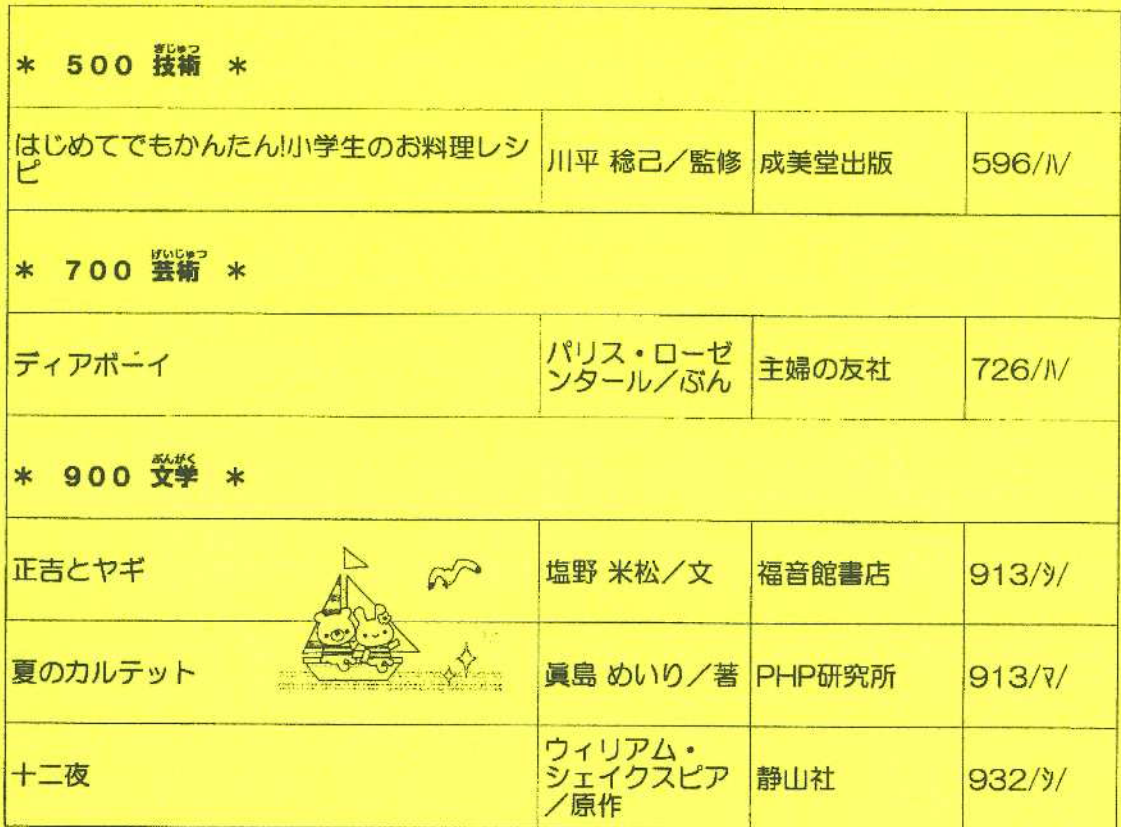 ぎじゅつ
* 500 技術 *
はじめてでもかんたん!小学生のお料理レシ
ピ
川平 稔己/監修
成美堂出版
596/ハ/
げいじゅつ
* 700 芸術 *
ディアボーイ
パリス・ローゼ
ンタール/ぶん
主婦の友社
726/ハ/
ぶんがく
* 900 文学 *
正吉とヤギ
塩野 米松/文
福音館書店
913/シ/
夏のカルテット
眞島 めいり/著
PHP研究所
913/マ/
十二夜
ウィリアム・
シェイクスピア
/原作
静山社
932/シ/